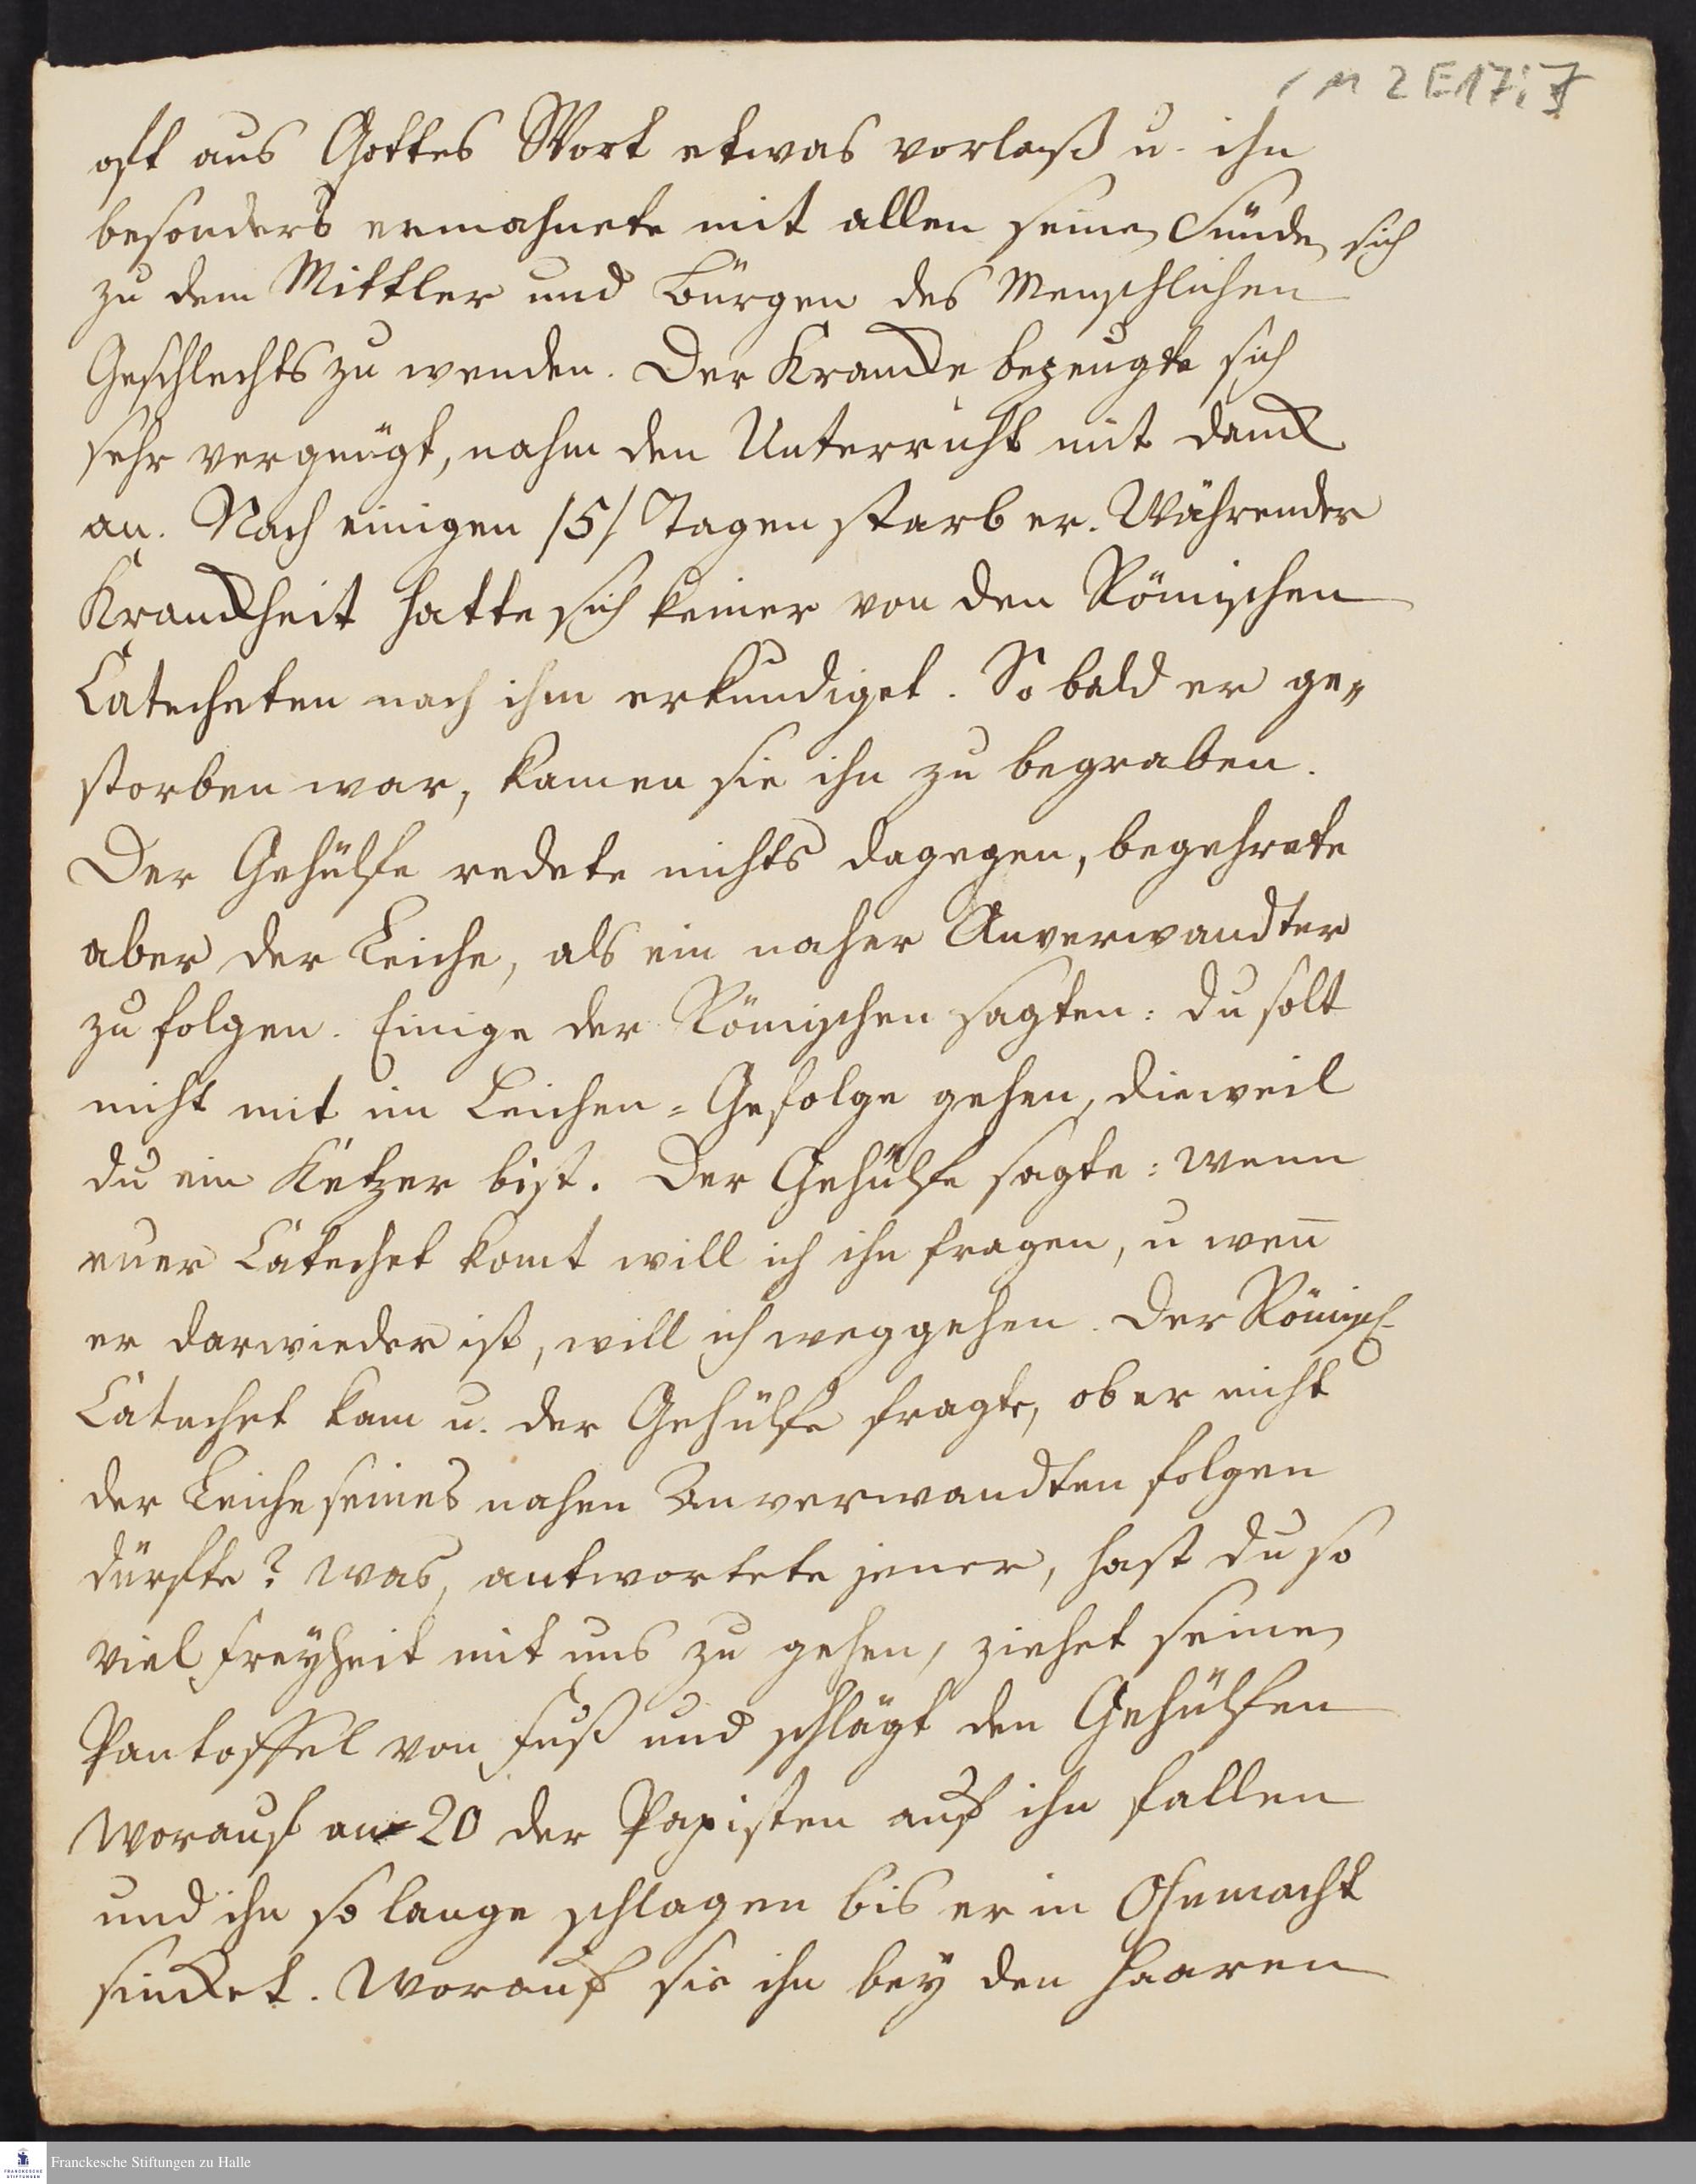 1 M 2 E 17 : 7
oft aus Gottes Wort etwas vorlaß u. ihn
besonders ermahnete mit allen seinen Sünden sich
zu dem Mittler und Bürgen des Menschlichen
Geschlechts zu wenden. Der Krancke bezeugte sich
sehr vergnügt, nahm den Unterricht mit danck
an. Nach einigen /5/ Tagen starb er. Währender
Kranckheit hatte sich keiner von den Römischen
Catecheten nach ihm erkundiget. So bald er ge-
storben war, kamen sie ihn zu begraben.
Der Gehülfe redete nichts dagegen, begehrete
aber der Leiche, als ein naher Anverwandter
zu folgen. Einige der Römischen sagten: du solt
nicht mit im Leichen-Gefolge gehen, dieweil
du ein Ketzer bist. Der Gehülfe sagte: wenn
euer Catechet komt will ich ihn fragen, u wen̄
er darwieder ist, will ich weggehen. Der Römisch
Catechet kam u. der Gehülfe fragte, ob er nicht
der Leiche seines nahen Anverwandten folgen
dürfte? was, antwortete jener, hast du so
viel Freyheit mit uns zu gehen, ziehet seinen
Pantoffel von Fuß und schlägt den Gehülfen
worauf an 20 der Papisten auf ihn fallen
und ihn so lange schlagen bis er in Ohnmacht
sincket. Worauf sie ihn bey den Haaren
Franckesche Stiftungen zu Halle